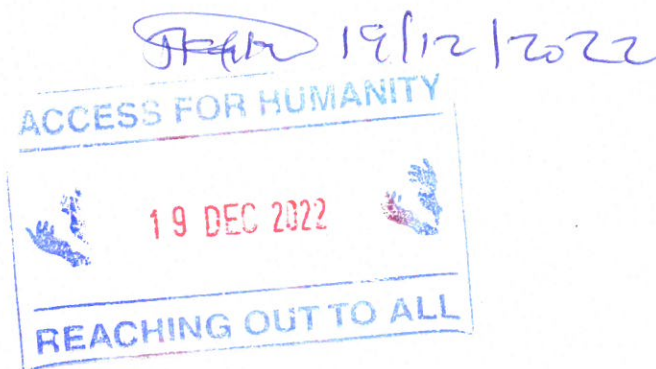 19/12/2022
ACCESS FOR HUMANITY
19 DEC 2022
REACHING OUT TO ALL